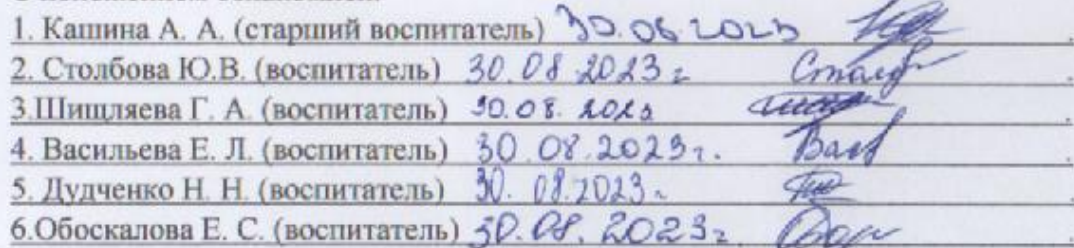 1. Кашина А. А. (старший воспитатель) 30.08.2023
2. Столбова Ю.В. (воспитатель) 30.08.2023 г
3.Шищляева Г. А. (воспитатель) 30.08.2023
4. Васильева Е. Л. (воспитатель) 30.08.2023 г.
5. Дудченко Н. Н. (воспитатель) 30.08.2023 г
6.Обоскалова Е. С. (воспитатель) 30.08.2023 г